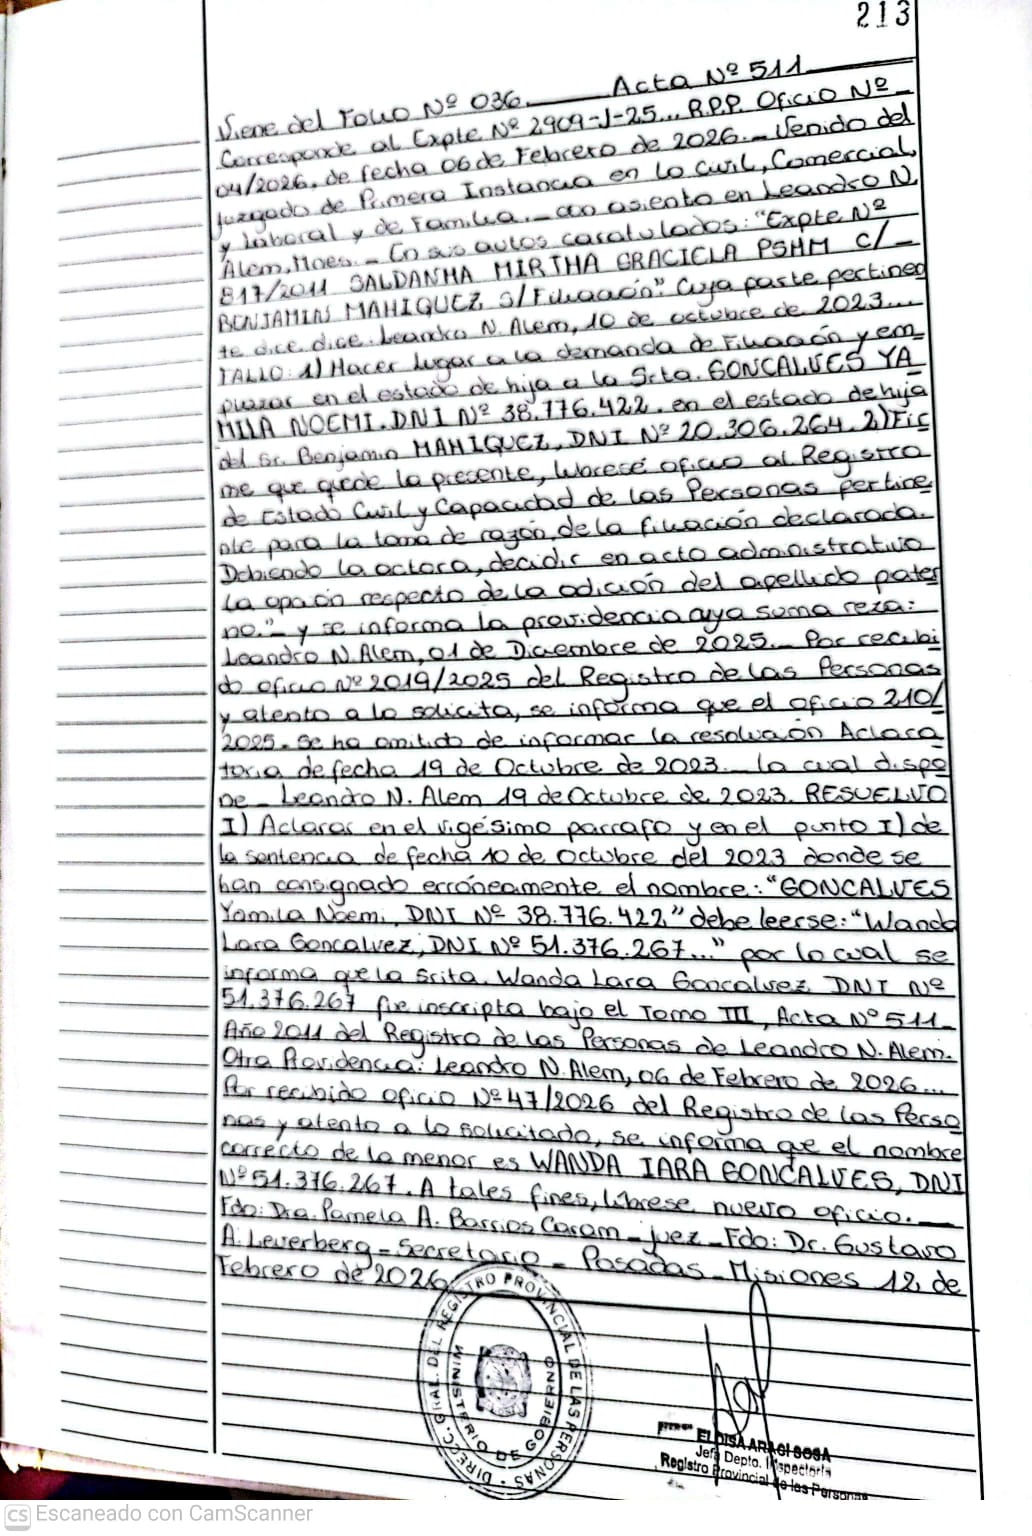 213
Viene del Folio Nº 036. Acta Nº 511
Corresponde al Expte Nº 2909-J-25... R.P.P. Oficio Nº
04/2026, de fecha 06 de Febrero de 2026._ Venido del
Juzgado de Primera Instancia en lo Civil, Comercial,
y Laboral y de Familia._ con asiento en Leandro N.
Alem, Mnes._ En sus autos caratulados: "Expte Nº
817/2011 SALDANHA MIRTHA GRACIELA PSHM C/_
BENJAMIN MAHIQUEZ, S/ Filiación". Cuya parte pertinen
te dice. dice. Leandro N. Alem, 10 de octubre de 2023...
FALLO: 1) Hacer Lugar a la demanda de Filiación y em_
plazar en el estado de hija a la Srta. GONCALVES YA
MILA NOEMI. DNI Nº 38.776.422. en el estado de hija
del Sr. Benjamin MAHIQUEZ, DNI Nº 20.306.264. 2) Fir
me que quede la presente, líbrese oficio al Registro
de Estado Civil y Capacidad de las Personas pertine
nte para la toma de razón, de la filiación declarada.
Debiendo la actora, decidir en acto administrativo
la opción respecto de la adición del apellido pater
no."_ y se informa la providencia cuya suma reza:
Leandro N. Alem, 01 de Diciembre de 2025._ Por recibi
do oficio Nº 2019/2025 del Registro de las Personas
y atento a lo solicita, se informa que el oficio 210/
2025. Se ha omitido de informar la resolución Aclara
toria de fecha 19 de Octubre de 2023._ la cual dispo
ne_ Leandro N. Alem 19 de Octubre de 2023. RESUELVO
I) Aclarar en el vigésimo parrafo y en el punto I) de
la sentencia de fecha 10 de Octubre del 2023 donde se
han consignado erróneamente el nombre: "GONCALVES
Yamila Noemi, DNI Nº 38.776.422" debe leerse: "Wanda
Lara Goncalvez, DNI Nº 51.376.267..." por lo cual se
informa que la Srita. Wanda Lara Goncalvez DNI Nº
51.376.267 fue inscripta bajo el Tomo III, Acta Nº 511_
Año 2011 del Registro de las Personas de Leandro N. Alem.
Otra Providencia: Leandro N. Alem, 06 de Febrero de 2026...
Por recibido oficio Nº 47/2026 del Registro de las Perso
nas y atento a lo solicitado, se informa que el nombre
correcto de la menor es WANDA IARA GONCALVES, DNI
Nº 51.376.267. A tales fines, líbrese nuevo oficio.__
Fdo: Dra. Pamela A. Barrios Caram_ juez_ Fdo: Dr. Gustavo
A. Leverberg_ Secretario_ Posadas_ Misiones 12, de
Febrero de 2026
DIREC. GRAL. DEL REGISTRO PROVINCIAL DE LAS PERSONAS
MINISTERIO DE GOBIERNO
ELOISA ARAGI SOSA
Jefa Depto. Inspectoría
Registro Provincial de las Personas
CS Escaneado con CamScanner